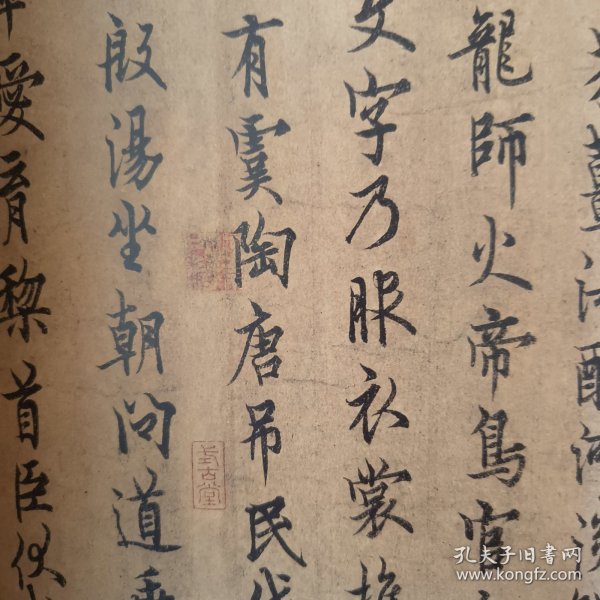 薑海醎河淡
龍師火帝鳥官
文字乃服衣裳推
有虞陶唐吊民伐
殷湯坐朝問道垂
愛育黎首臣伏
式古堂
孔夫子旧书网
www.kongfz.com